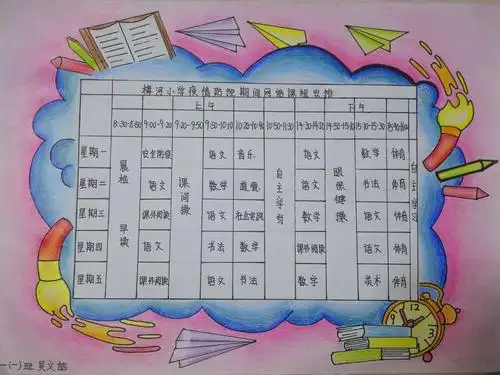 樟河小学疫情防控期间网络课程安排
上午 下午
8:30-8:50 9:00-9:20 9:20-9:50 9:50-10:10 10:20-10:40 10:50-11:30 14:30-14:50 14:50-15:10 15:10-15:30
星期一 安全防疫 语文 音乐 语文 数学 体育
星期二 语文 数学 道德 语文 书法 体育
星期三 课外阅读 语文 社会实践 数学 语文 体育
星期四 语文 书法 数学 课外阅读 语文 体育
星期五 课外阅读 语文 书法 数学 美术 体育
晨检 早读
课间操
自主学习
眼保健操
自主学习
12
一(一)班 吴文喆